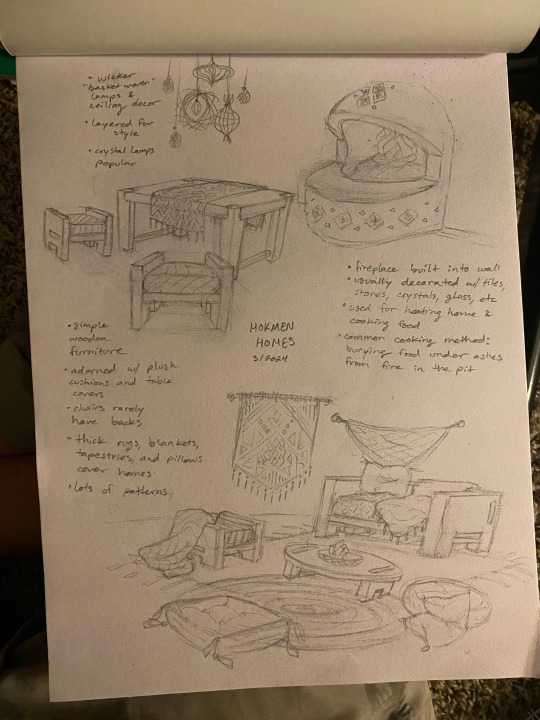 • wicker
"basket woven"
lamps &
ceiling decor
• layered for
style
• crystal lamps
popular
• fireplace built into wall
• usually decorated w/ tiles,
stones, crystals, glass, etc
• used for heating home &
cooking food
• common cooking method:
burying food under ashes
from fire in the pit
HOKMEN
HOMES
3/2024
• simple
wooden
furniture
• adorned w/ plush
cushions and table
covers
• chairs rarely
have backs
• thick rugs, blankets,
tapestries, and pillows
cover homes.
• Lots of patterns,